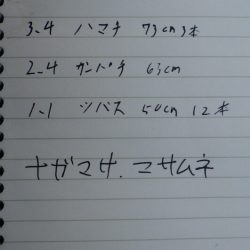 3.4 ハマチ 73cm 3本
2.4 カンパチ 63cm
1.1 ツバス 50cm 12本
ナガマサ.マサムネ